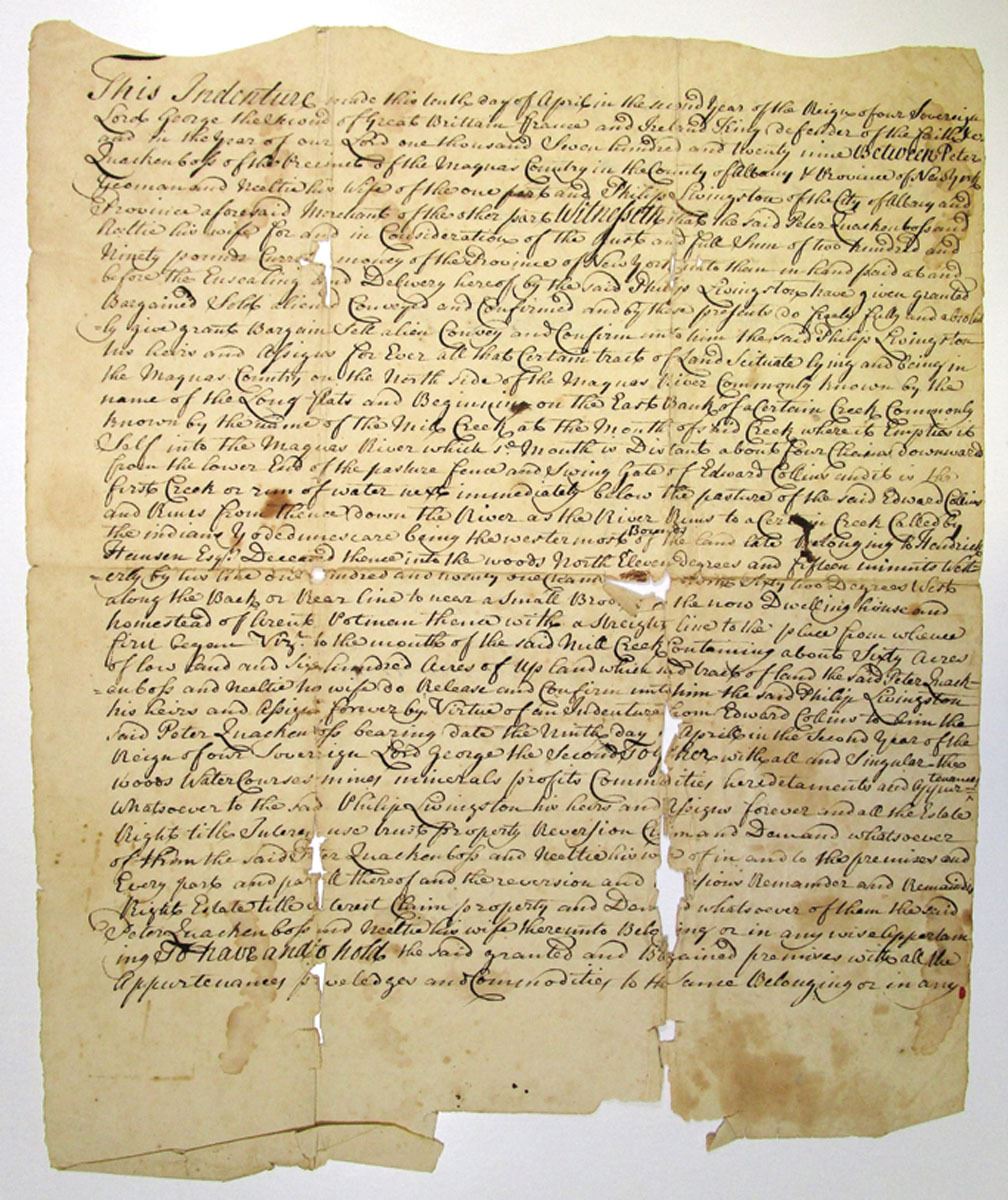 This Indenture made this tenth day of April in the second Year of the Reign of our Sovereign
Lord George the Second of Great Brittain France and Ireland King defender of the faith &c
and in the Year of our Lord one thousand Seven hundred and twenty nine Between Peter
Quackenboss of the Precincts of the Maquas Country in the County of Albany & Province of New York
Yeoman and Neeltie his Wife of the one part and Philip Livingston of the City of Albany and
Province aforesaid Merchant of the other part Witnesseth that the said Peter Quackenboss and
Neeltie his wife for and in Consideration of the Just and full Sum of two hundred and
Ninety pounds Curr money of the Province of New York unto them in hand paid at and
before the Ensealing and Delivery hereof by the said Philip Livingston have given granted
Bargained Sold alien Conveyed and Confirmed and by these presents do freely fully and absolut
=ly give grant Bargain Sell alien Convey and Confirm unto him the said Philip Livingston
his heirs and Assigns for Ever all that Certain tract of Land Scituate lying and being in
the Maquas Country on the North side of the Maquas River Commonly known by the
name of the Long flats and Beginning on the East Bank of a Certain Creek Commonly
known by the name of the Mill Creek at the Mouth of said Creek where it Empties it
Self into the Maquas River which sd. Mouth is Distant about four Chains downward
from the lower End of the pasture fence and Swing Gate of Edward Collins and it is the
first Creek or run of water next immediately below the pasture of the said Edward Collins
and Runs from thence down the River as the River Runs to a Certain Creek Called by
the indians being the westermost Bounds of the land late belonging to Hendrick
Hansen Esqr. Deceased thence into the woods North Eleven degrees and fifteen minuts West
erly by his line one hundred and ninety one Chain Sixty two Degrees West
along the Back or Rear line to near a Small Brook the now Dwelling house and
homestead of Arent Potman thence with a streight line to the place from whence
first began Vizt. to the mouth of the said Mill Creek Containing about Sixty Acres
of low land and Six hundred Acres of Upland which said tract of land the said Peter Quack
=enboss and Neeltie his wife do Release and Confirm unto him the said Philip Livingston
his heirs and Assigns forever by Virtue of an Indenture from Edward Collins to him the
said Peter Quackenboss bearing date the Ninth day April in the Second Year of the
Reign of our Sovereign Lord George the Second Together with all and Singular the
woods Water Courses mines minerals profits Commodities hereditaments and Appurtenances
whatsoever to the said Philip Livingston his heirs and Assigns forever and all the Estate
Right title Interest use trust property Reversion Claim and Demand whatsoever
of them the said Peter Quackenboss and Neeltie his wife of in and to the premises and
Every part and parcell thereof and the reversion and Remainder and Remainders
Right Estate title interest Claim property and Demand whatsoever of them the said
Peter Quackenboss and Neeltie his wife thereunto Belonging or in any wise Appertain
ing To have and to hold the said granted and Bargained premises with all the
Appurtenances priveledges and Commodities to the same Belonging or in any